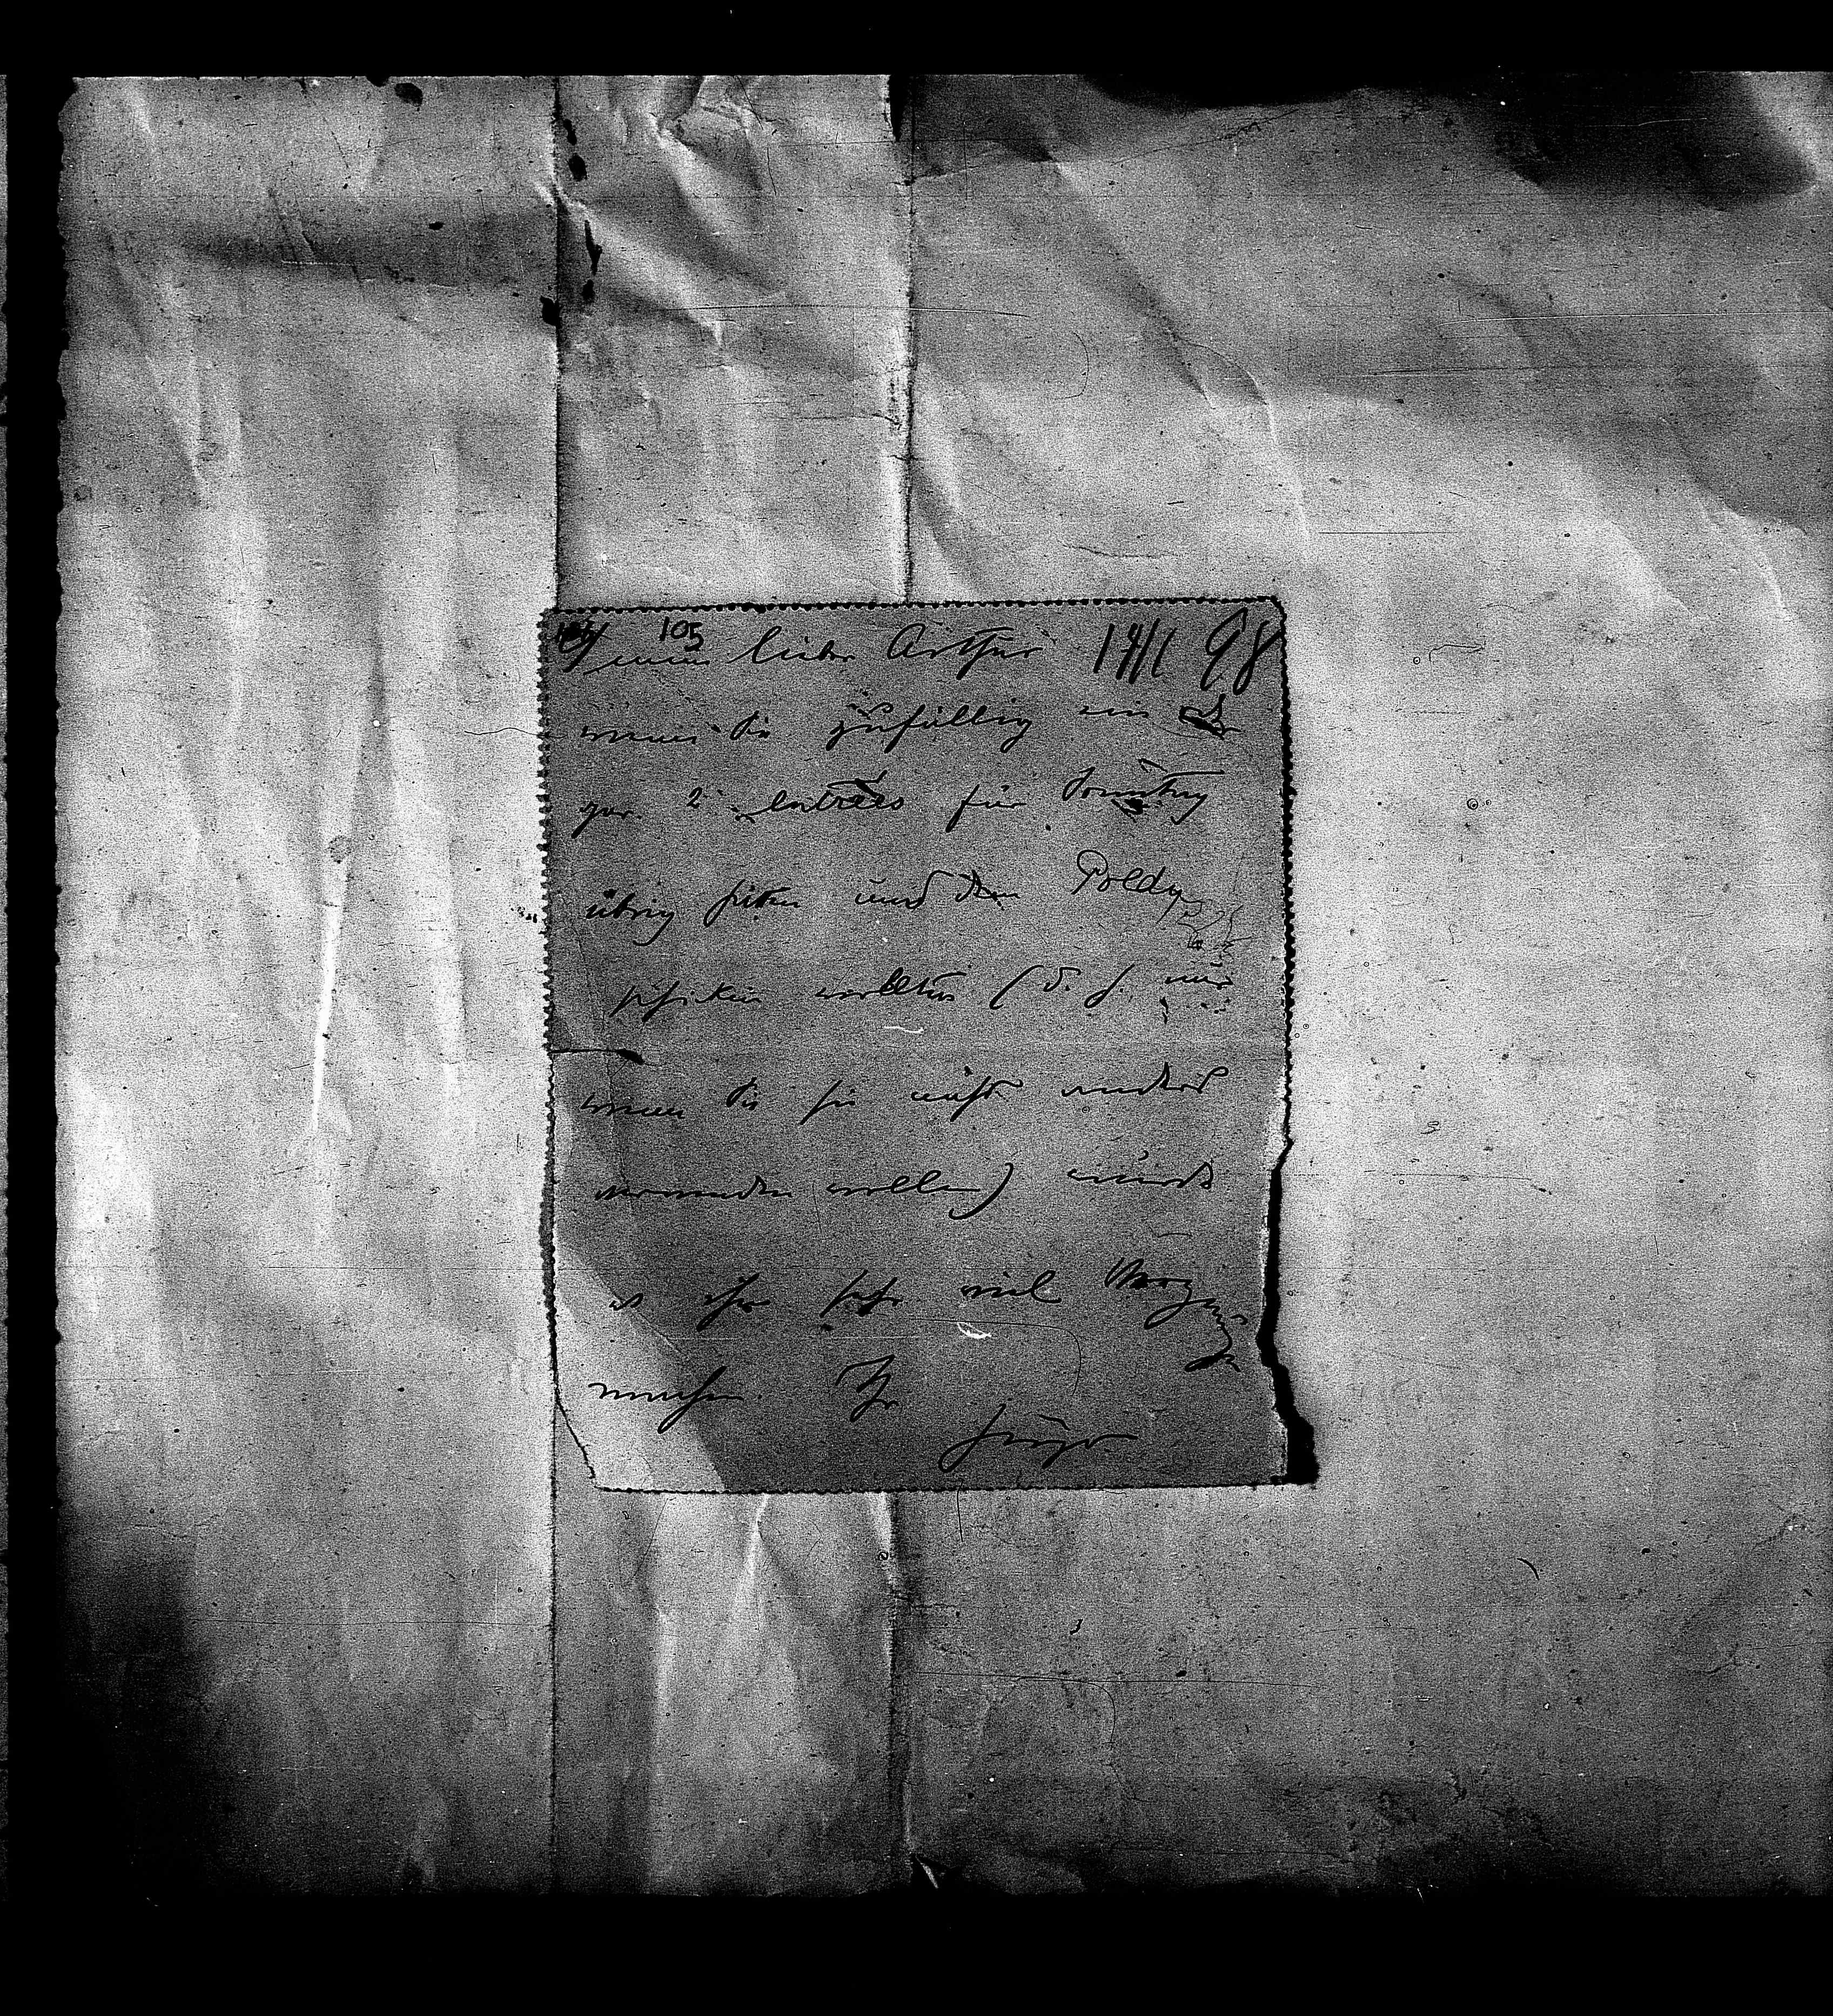 105
mein lieber Arthur 14/1 98
wenn Sie zufällig ein oder
gar 2 Entrées für Sonntag
übrig hätten und dem Poldy
schicken wollten (d. h. nur
wenn Sie sie nicht anders
verwenden wollen) würde
es ihm sehr viel Vergnügen
machen. Ihr
Hugo.